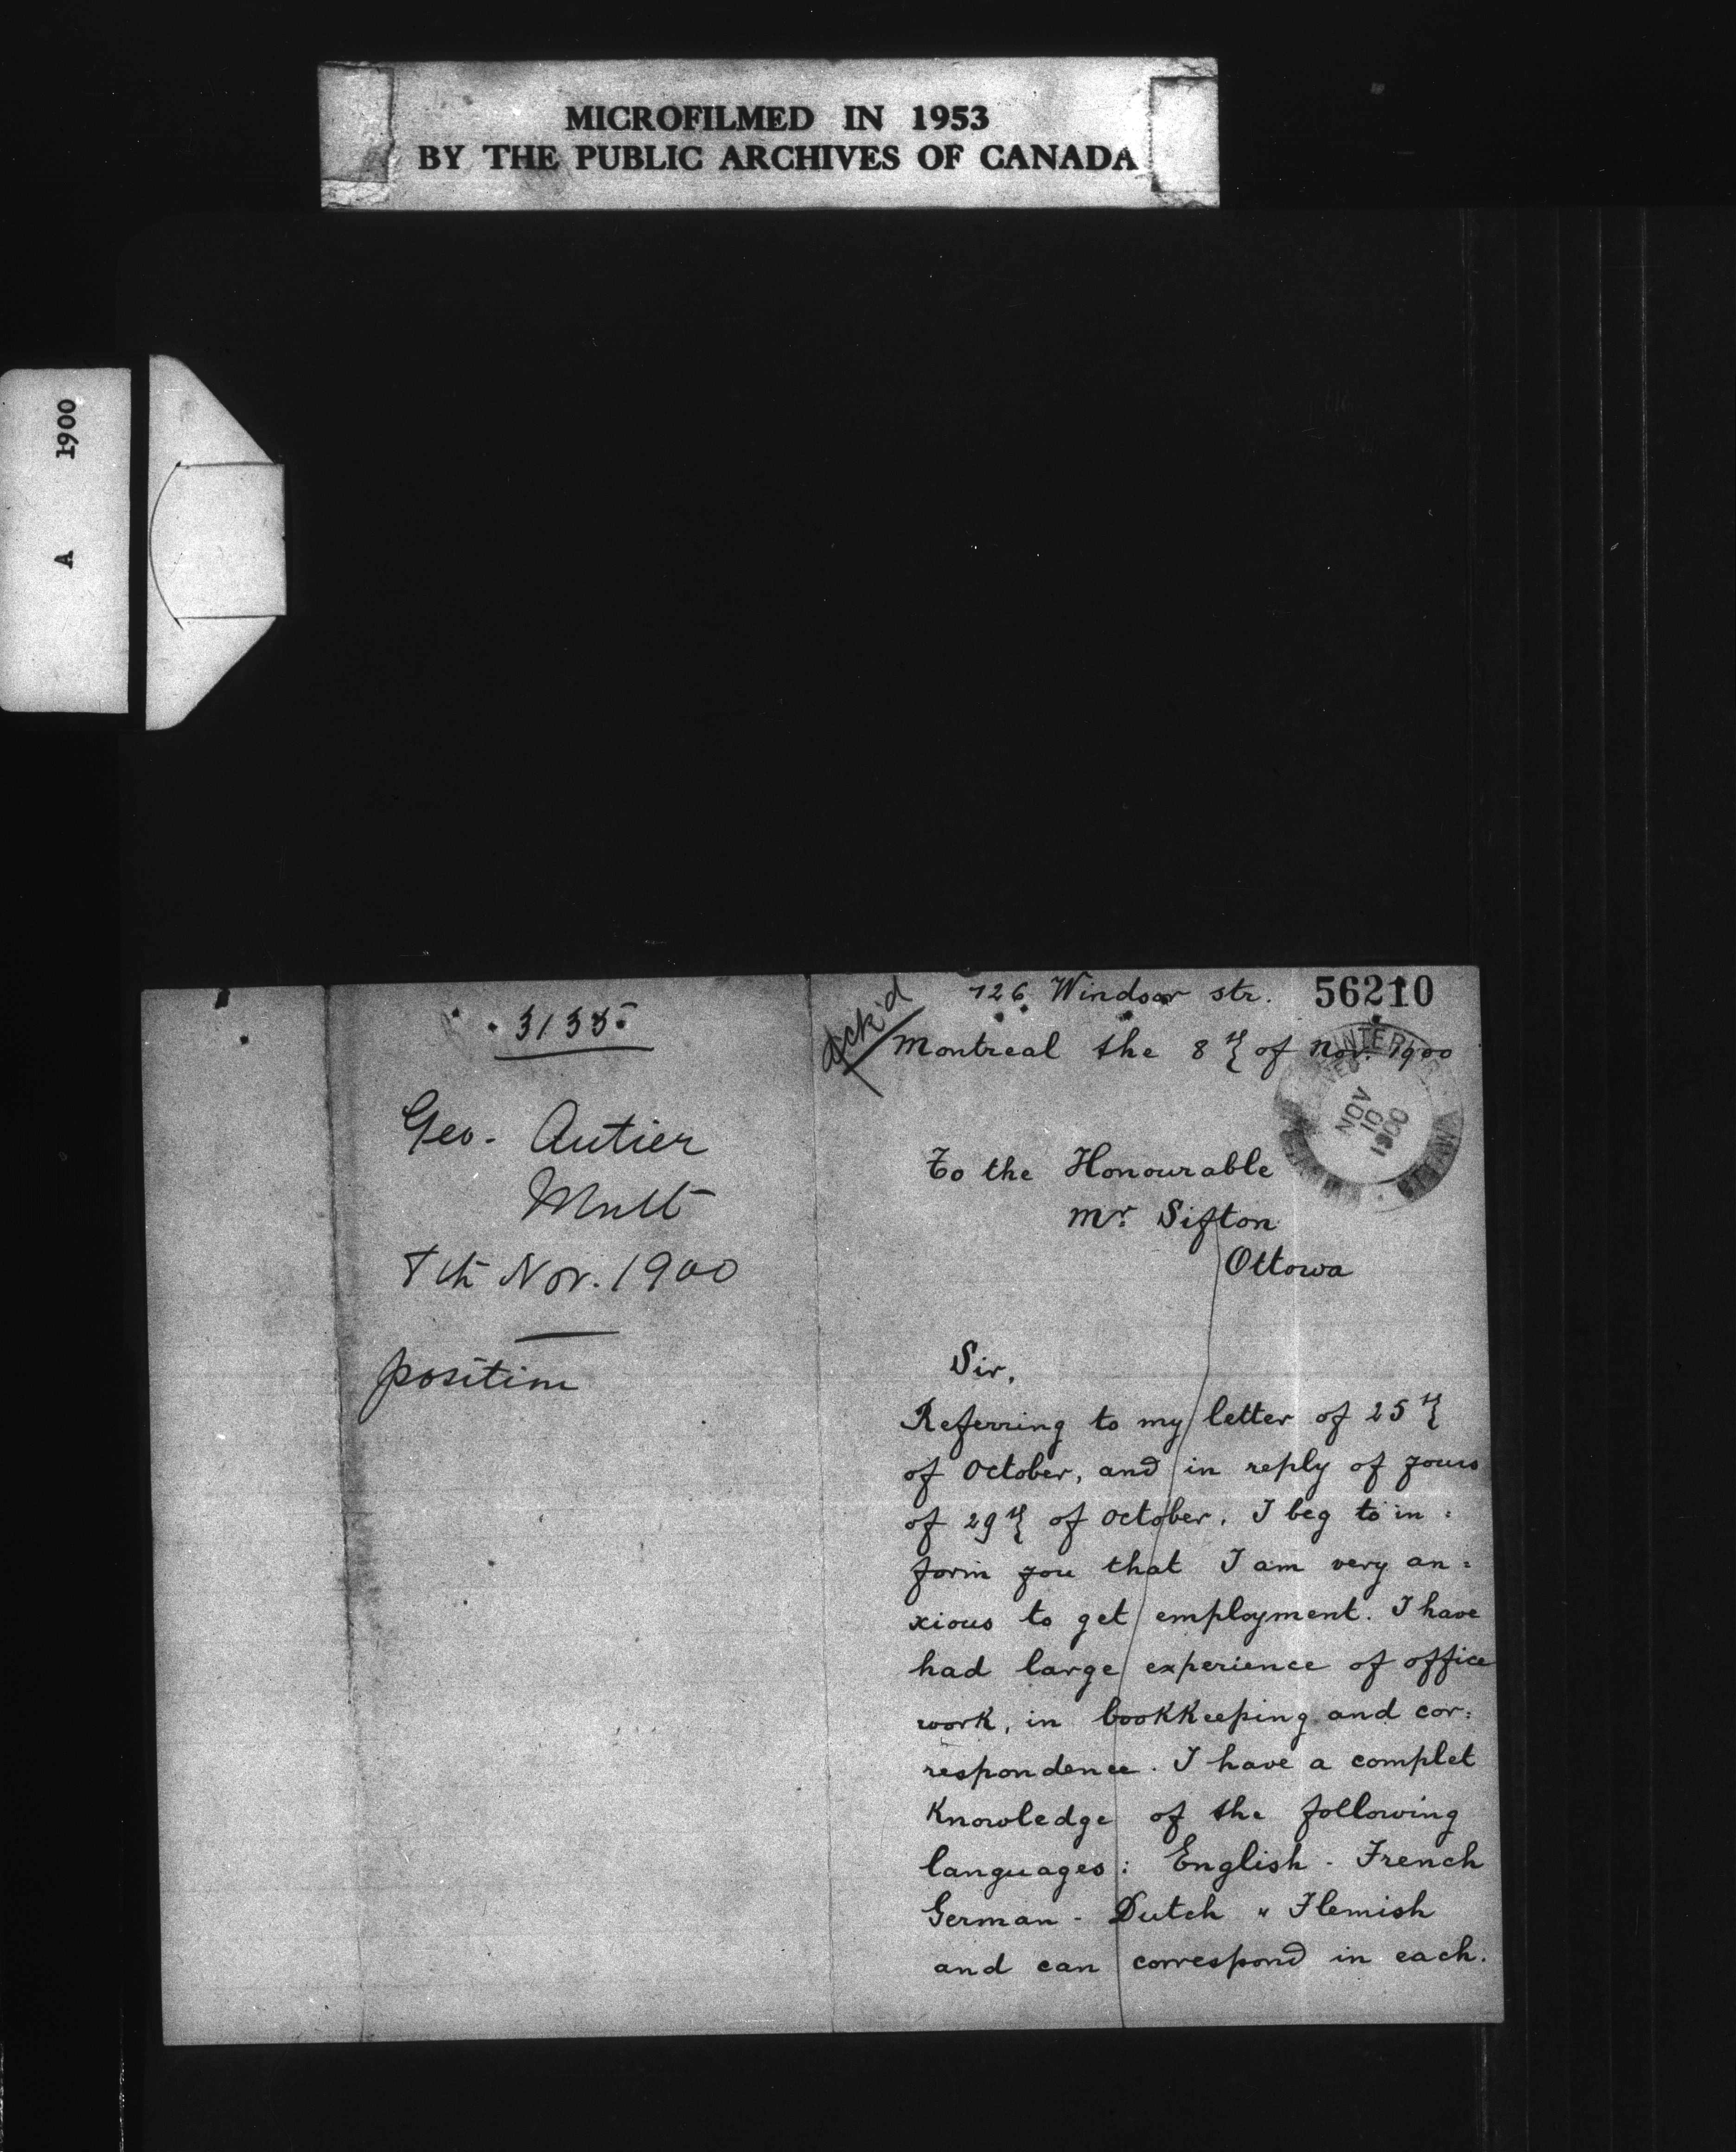 MICROFILMED IN 1953
BY THE PUBLIC ARCHIVES OF CANADA
A 1900
3135
Geo. Autier
8th Nov. 1900
position
Ack'd
126 Windsor str.
56210
Montreal the 8th of Nov. 1900
INTERIOR
NOV
10
1900
To the Honourable
Mr. Sifton
Ottowa
Sir,
Referring to my letter of 25th
of October, and in reply of yours
of 29th of October. I beg to in=
form you that I am very an=
xious to get employment. I have
had large experience of office
work, in bookkeeping and cor=
respondence. I have a complet
Knowledge of the following
languages: English - French
German - Dutch " Flemish
and can correspond in each.